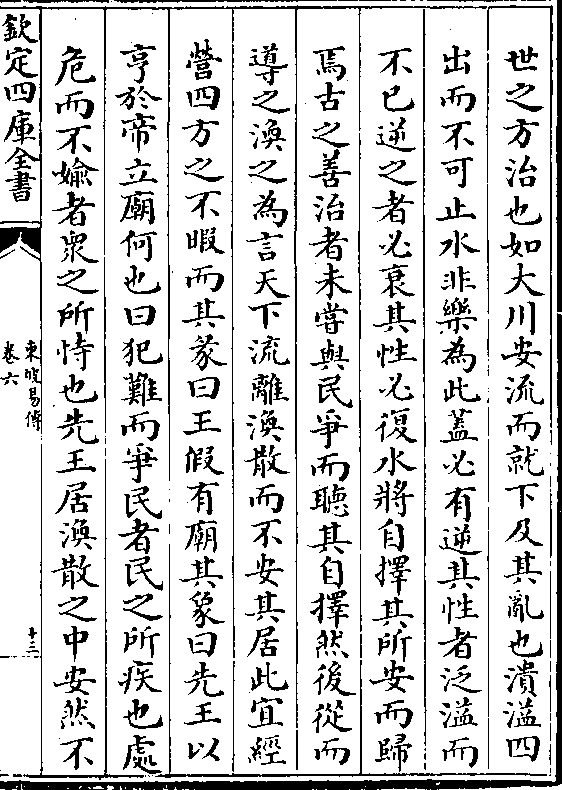 世之方治也如大川安流而就下及其亂也潰溢四
出而不可止水非樂為此蓋必有逆其性者泛溢而
不已逆之者必衰其性必復水將自擇其所安而歸
焉古之善治者未嘗與民爭而聽其自擇然後從而
導之渙之為言天下流離渙散而不安其居此宜經
營四方之不暇而其彖曰王假有廟其象曰先王以
亨於帝立廟何也曰犯難而爭民者民之所疾也處
危而不媮者衆之所恃也先王居渙散之中安然不
欽定四庫全書
東坡易傳
卷六
十三